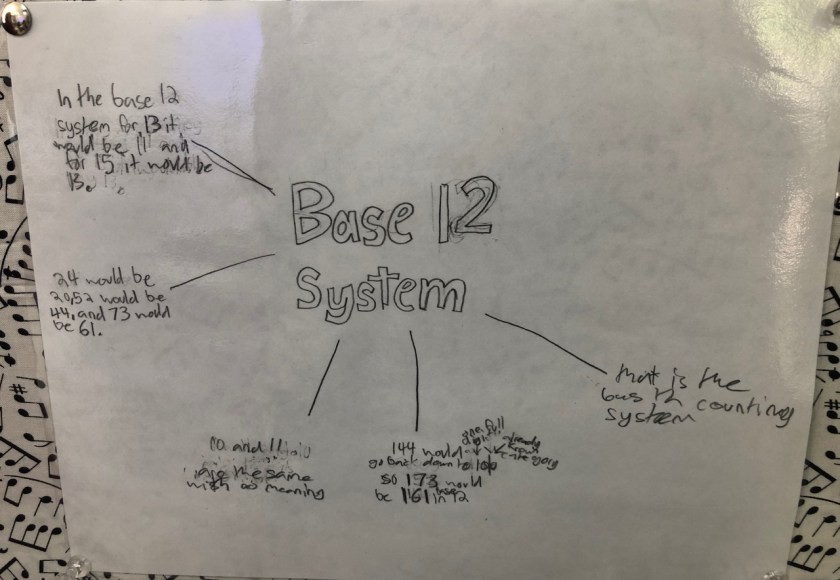 In the base 12
system for 13 it
would be 11 and
for 15 it would be
13.
Base 12
System
24 would be
20, 52 would be
44, and 73 would
be 61.
that is the
counting
system
and 11
are the same
with meaning
144 would
go back down to 100
so 173 would
be 161 in